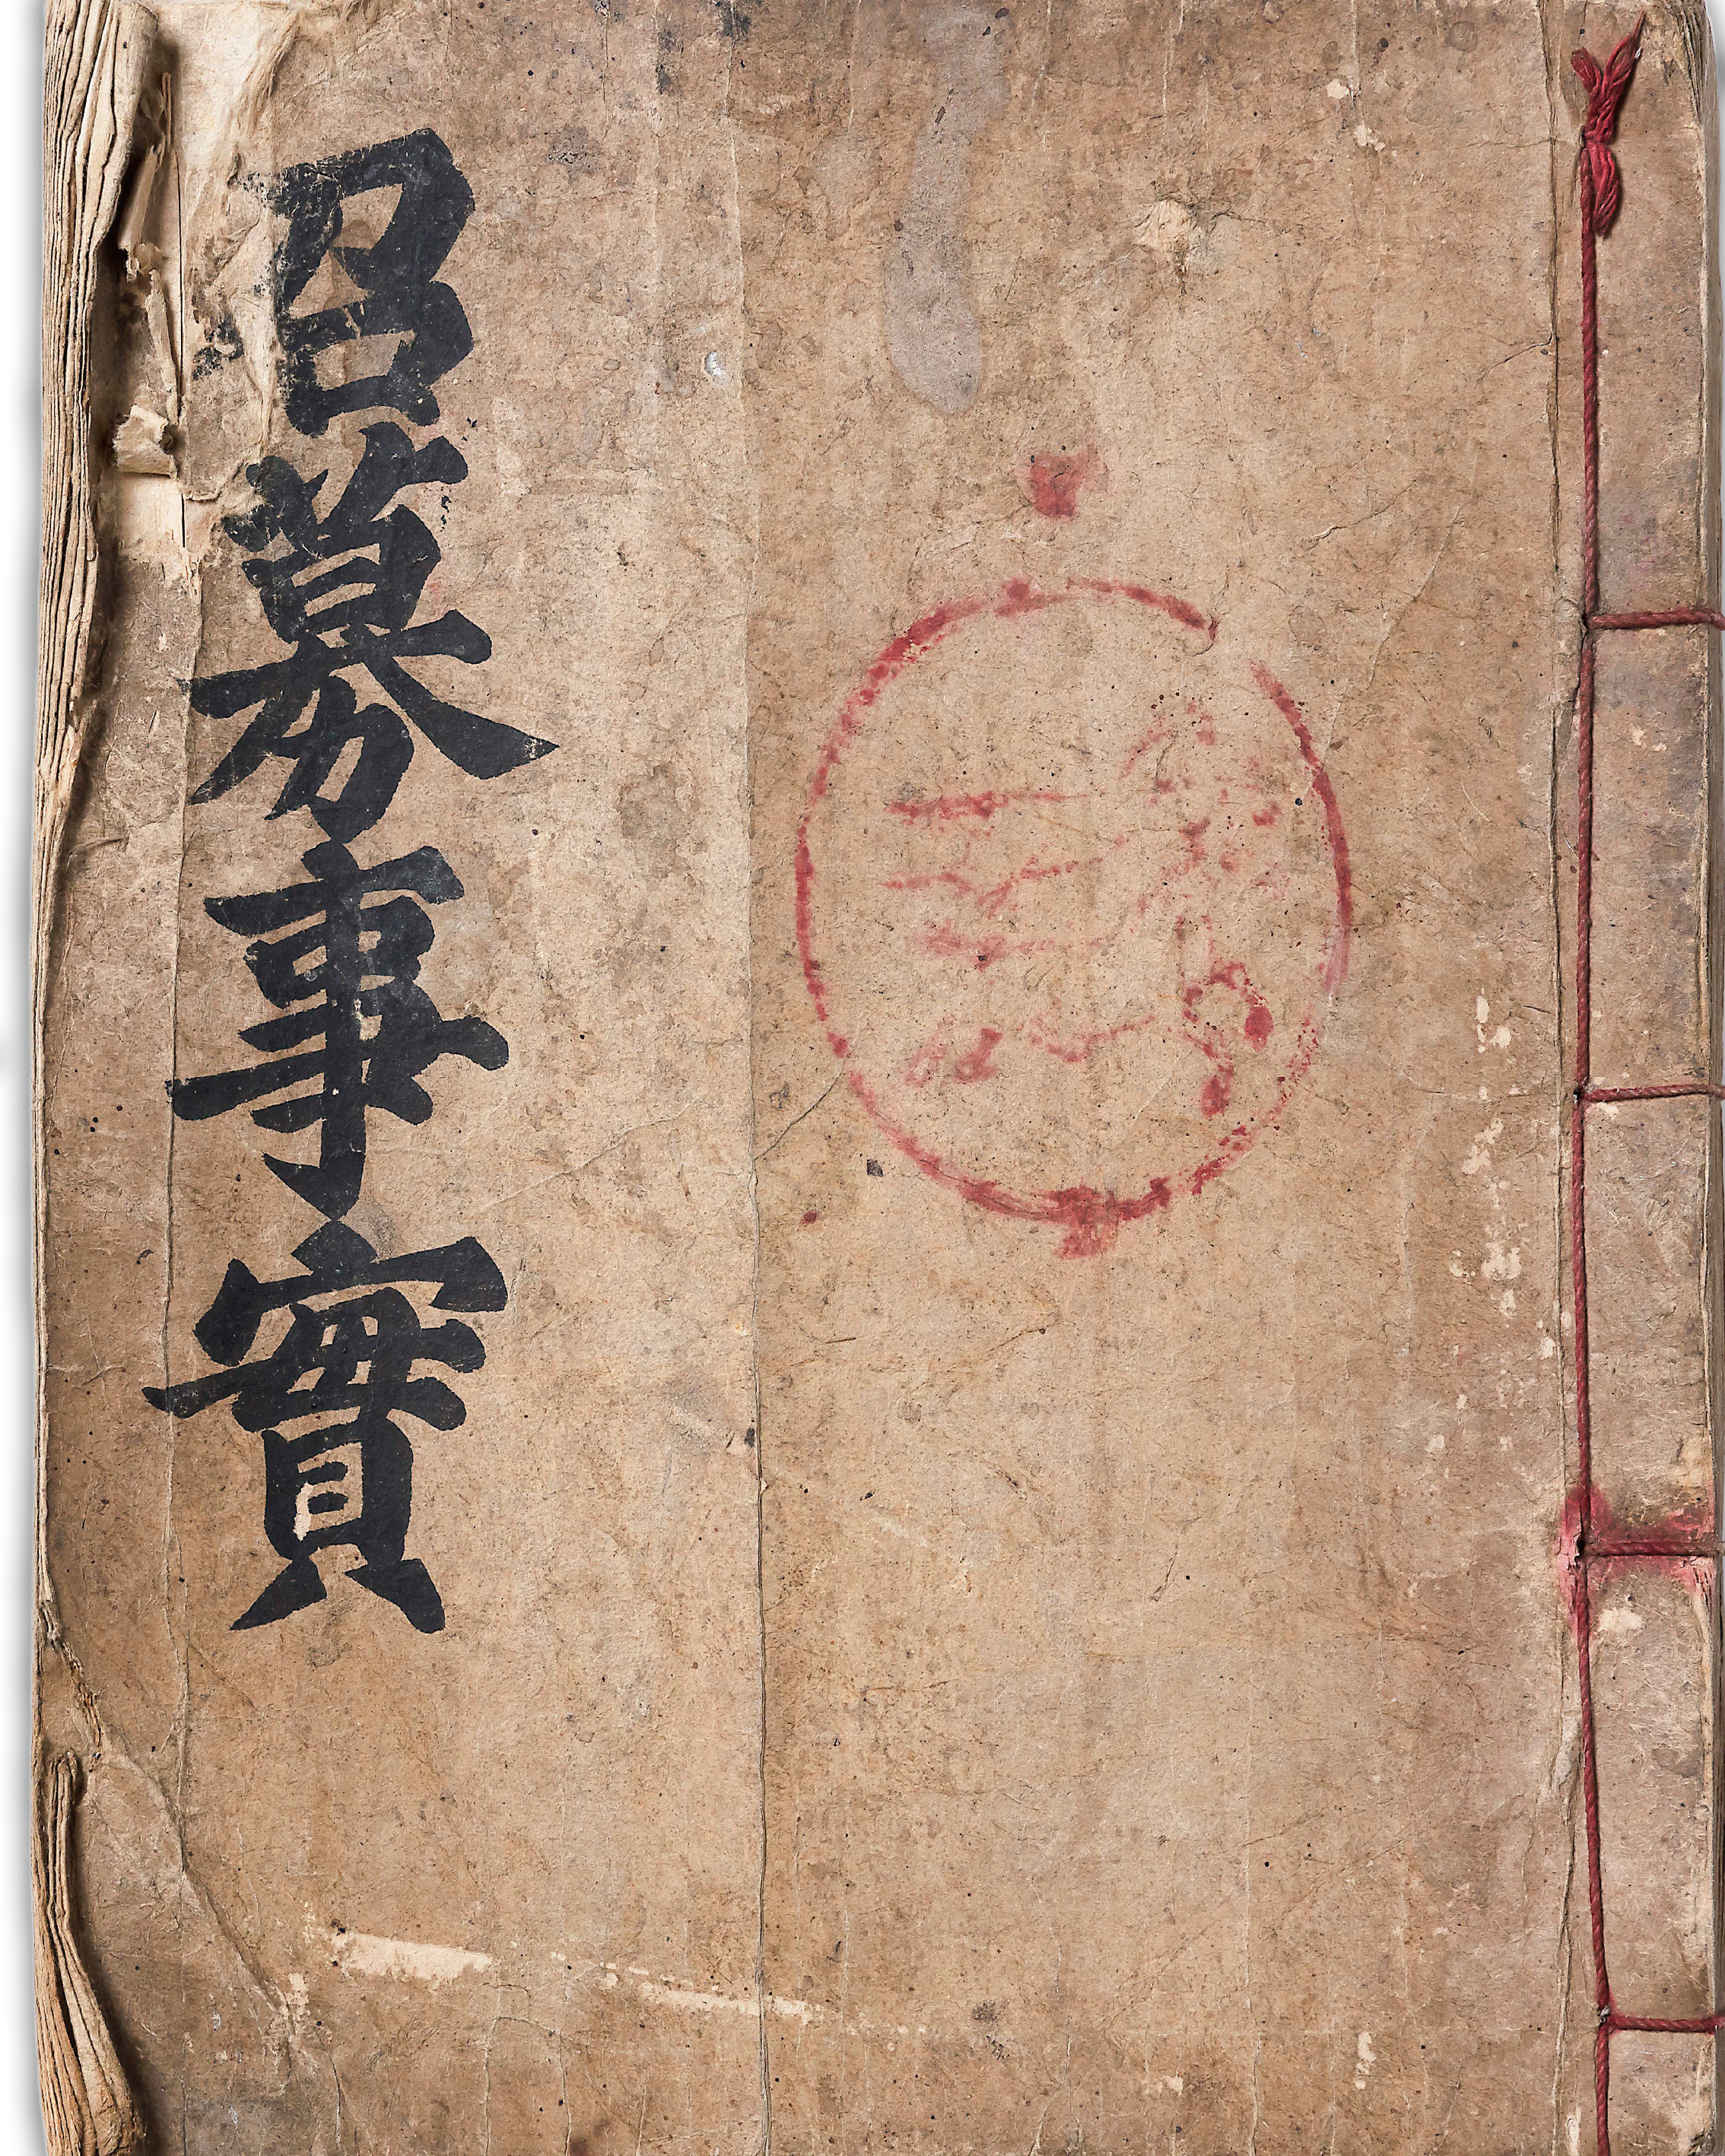 召募事實